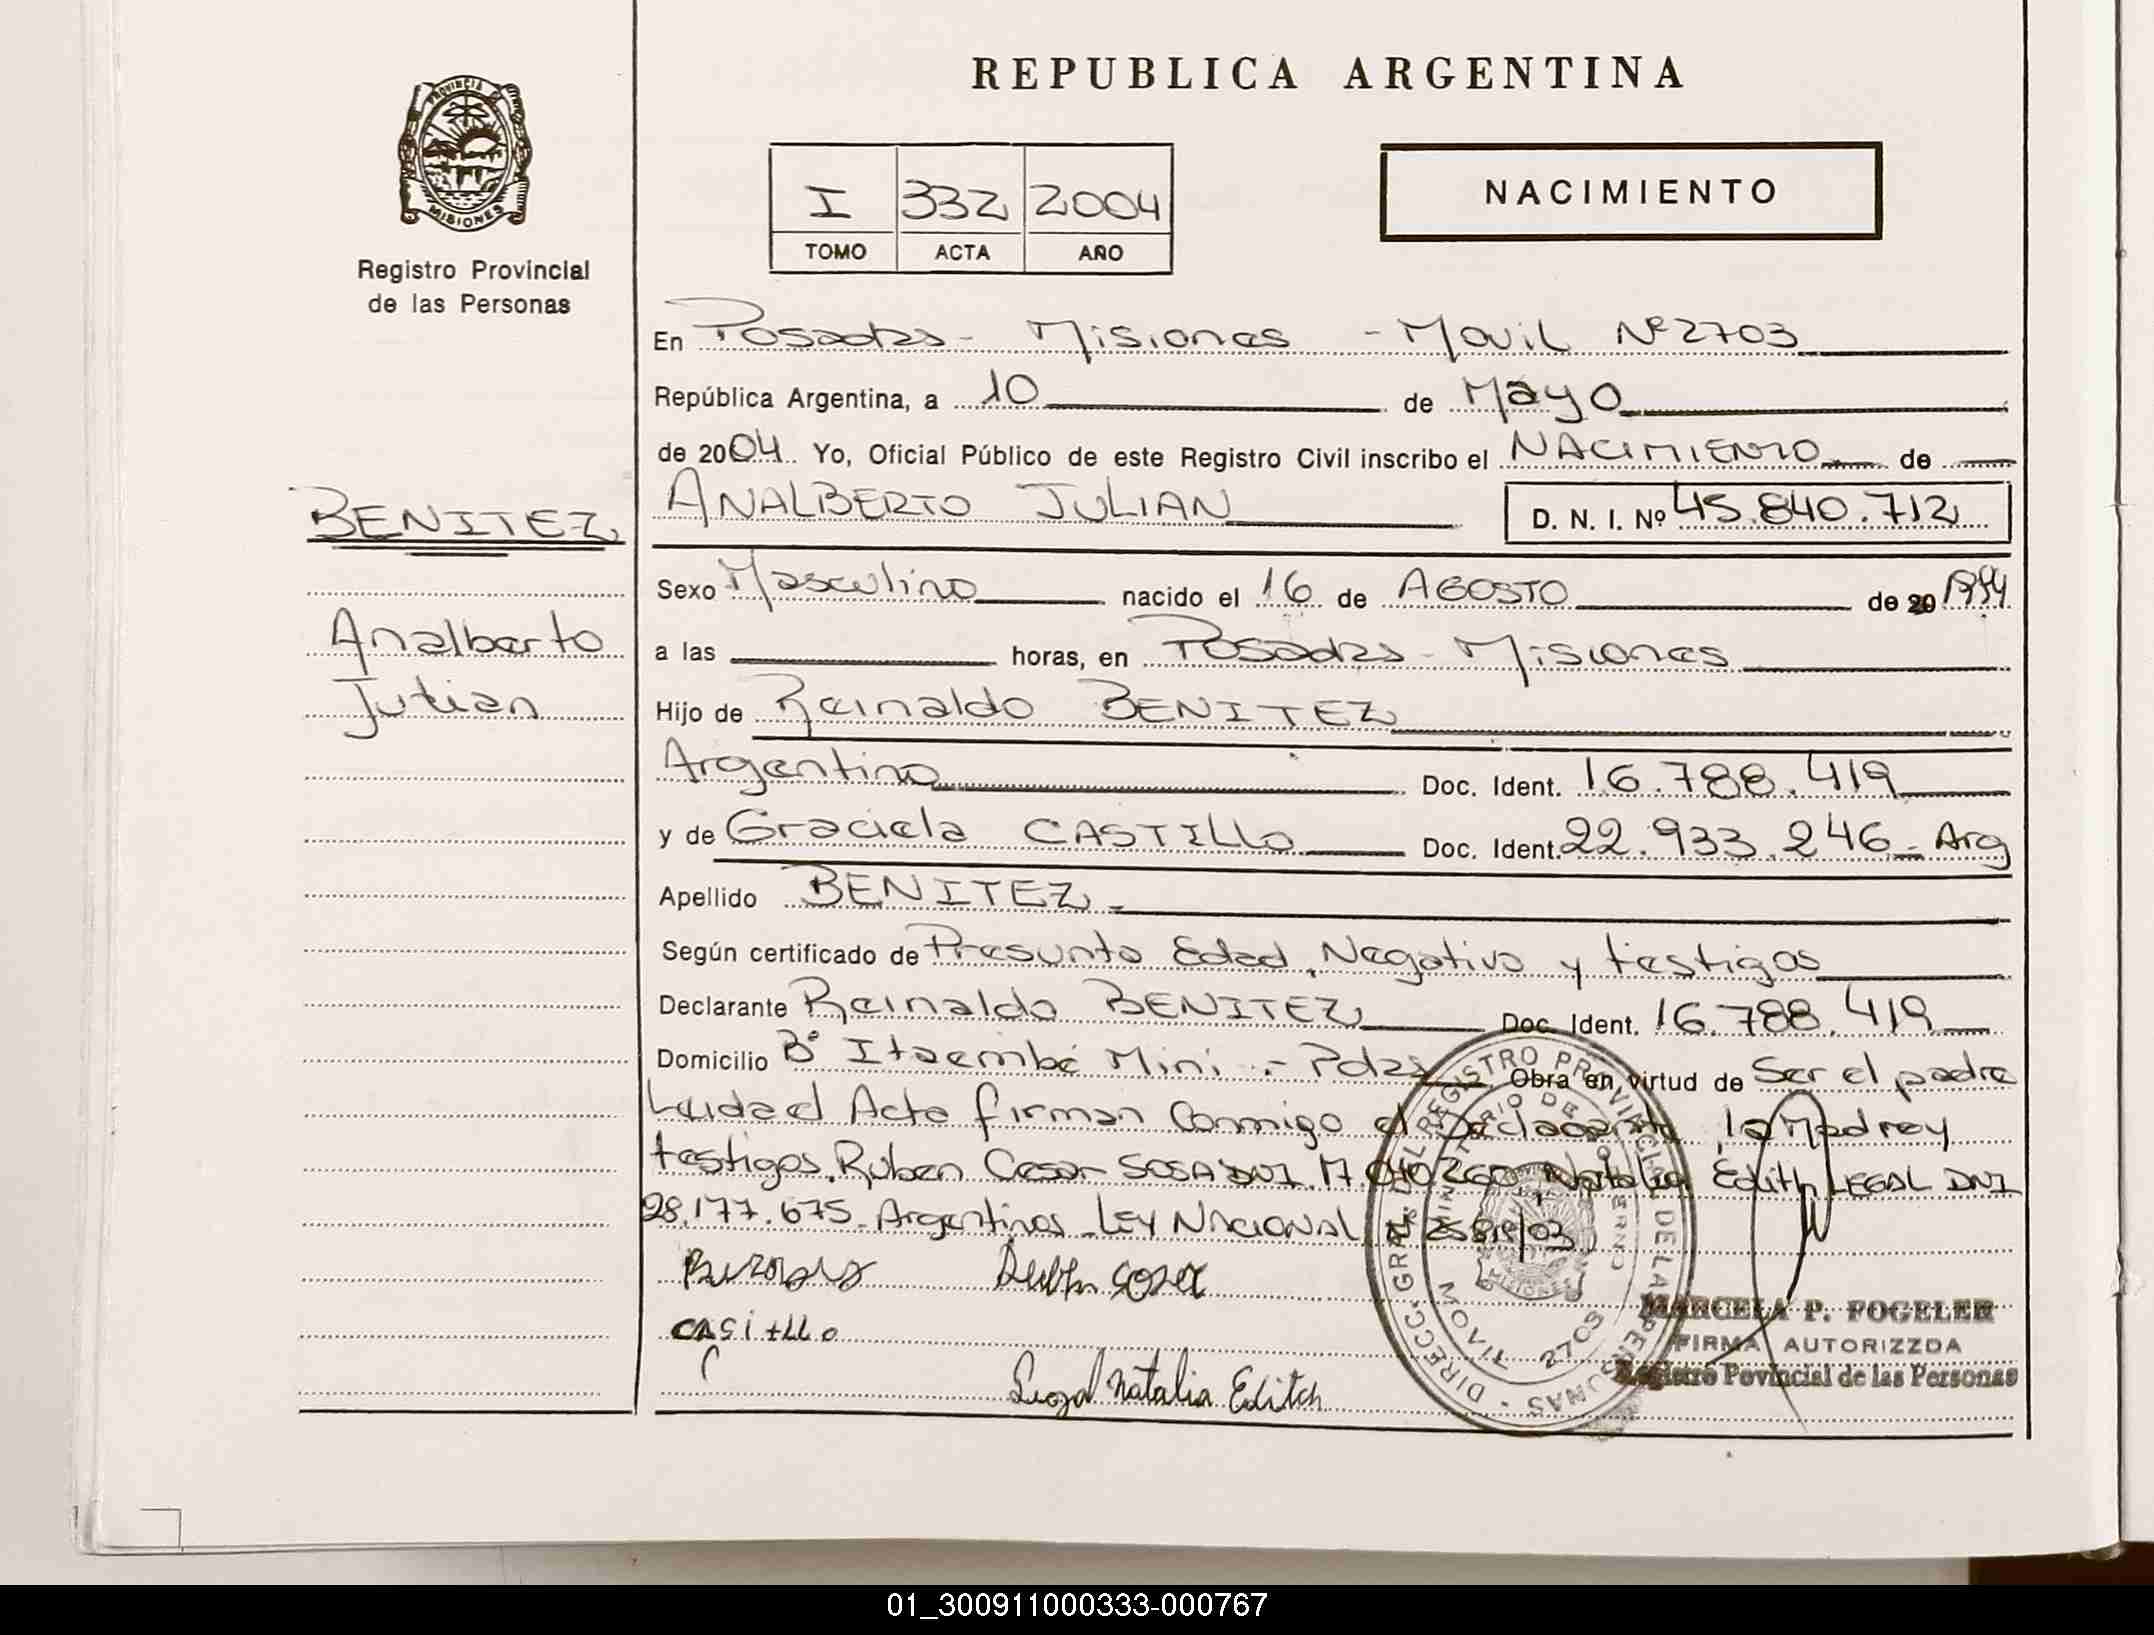 REPUBLICA ARGENTINA
PROVINCIA
MISIONES
Registro Provincial
de las Personas
I 332 2004
TOMO ACTA AÑO
NACIMIENTO
En Posadas - Misiones - Movil Nº 2703
República Argentina, a 10 de Mayo
de 2004 Yo, Oficial Público de este Registro Civil inscribo el NACIMIENTO de
BENITEZ
ANALBERTO JULIAN D. N. I. Nº 45.840.712
Sexo Masculino nacido el 16 de AGOSTO de 20 1994
Analberto
a las horas, en Posadas - Misiones
Julian
Hijo de Reinaldo BENITEZ
Argentino Doc. Ident. 16.788.419
y de Graciela CASTILLO Doc. Ident. 22.933.246 - Arg
Apellido BENITEZ -
Según certificado de Presunta Edad, Negativo y testigos
Declarante Reinaldo BENITEZ Doc. Ident. 16.788.419
Domicilio Bº Itaembé Mini - Pdas Obra en virtud de Ser el padre
Leida el Acta firman Conmigo el Declarante, la Madre y
testigos. Ruben Cesar SOSA DNI 17.040260 Natalia Edith LEGAL DNI
28.177.675 - Argentinos - LEY NACIONAL Nº 25819/03
Ruben Sosa
CASTILLO
Legal Natalia Editch
DIRECC. GRAL. DEL REGISTRO PROVINCIAL DE LAS PERSONAS
MINISTERIO DE GOBIERNO
MISIONES
MOVIL 2703
MARCELA P. FOGELER
FIRMA AUTORIZZDA
Registro Povincial de las Personas
01_300911000333-000767